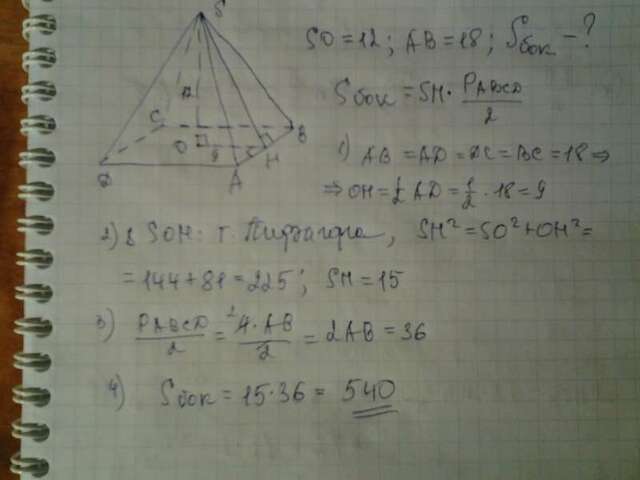 SO = 12 ; AB = 18 ; Sбок - ?
Sбок = SH · PABCD/2
1) AB = AD = DC = BC = 18 ⇒
⇒ OH = 1/2 AD = 1/2 · 18 = 9
2) Δ SOH: т. Пифагора, SH² = SO² + OH² =
= 144 + 81 = 225 ; SH = 15
3) PABCD/2 = 4·AB/2 = 2AB = 36
4) Sбок = 15·36 = 540
S
12
C
B
O
9
H
D
A